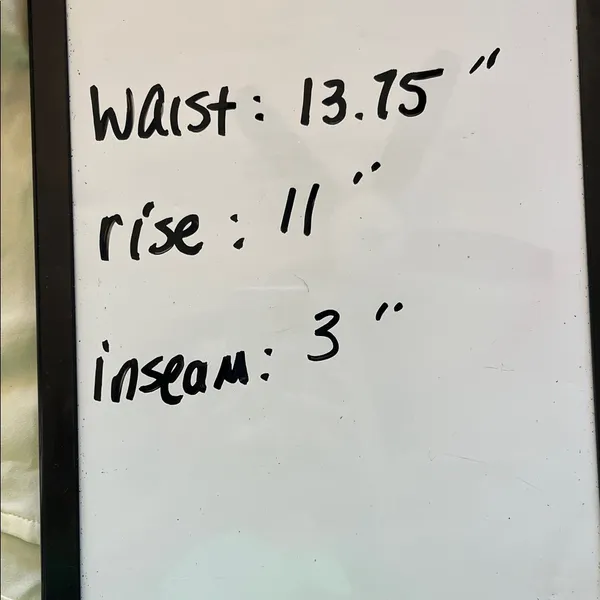 Waist: 13.75"
rise: 11"
inseam: 3"